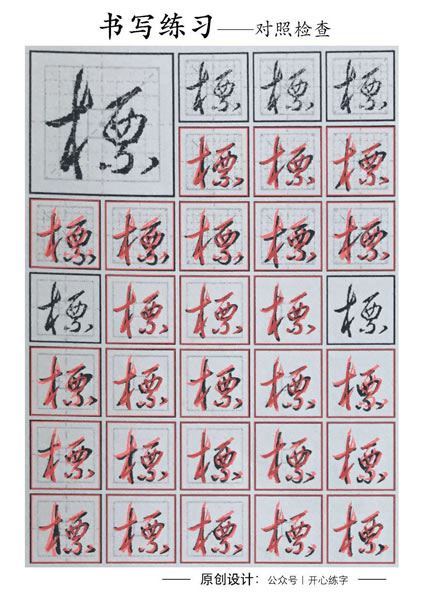 书写练习——对照检查
標 標 標 標
標 標 標
標 標 標 標 標
標 標 標 標 標
標 標 標 標 標
標 標 標 標 標
標 標 標 標 標
—— 原创设计：公众号｜开心练字 ——